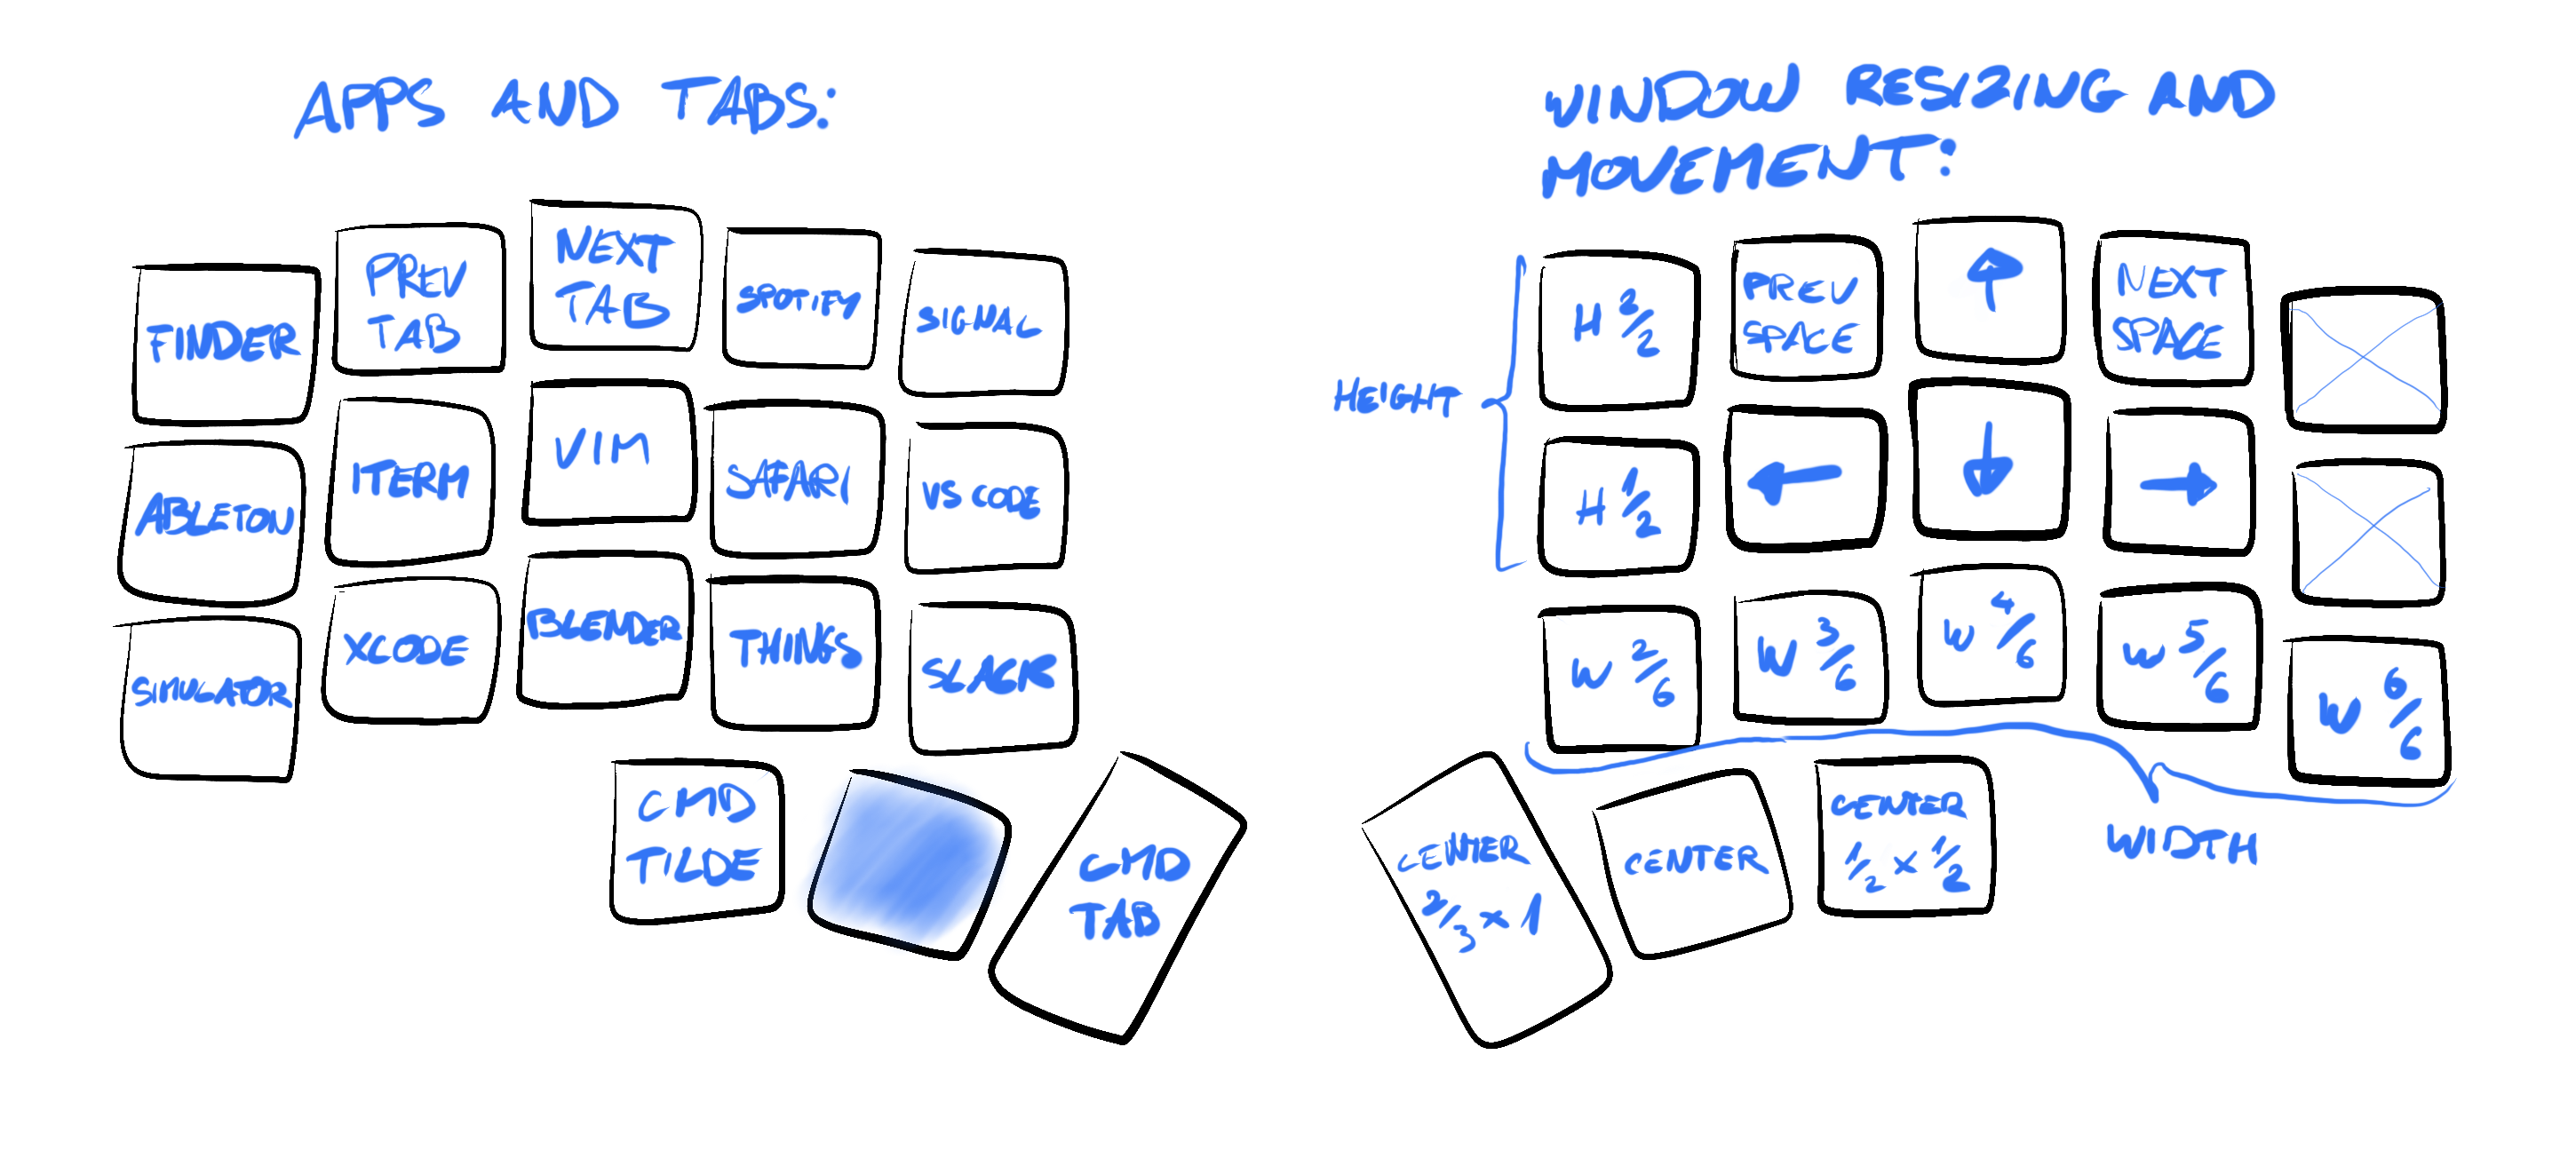 APPS AND TABS:
FINDER
PREV
TAB
NEXT
TAB
SPOTIFY
SIGNAL
ABLETON
ITERM
VIM
SAFARI
VS CODE
SIMULATOR
XCODE
BLENDER
THINGS
SLACK
CMD
TILDE
CMD
TAB
WINDOW RESIZING AND
MOVEMENT:
HEIGHT
H 2/2
PREV
SPACE
↑
NEXT
SPACE
H 1/2
←
↓
→
W 2/6
W 3/6
W 4/6
W 5/6
W 6/6
WIDTH
CENTER
2/3 x 1
CENTER
CENTER
1/2 x 1/2